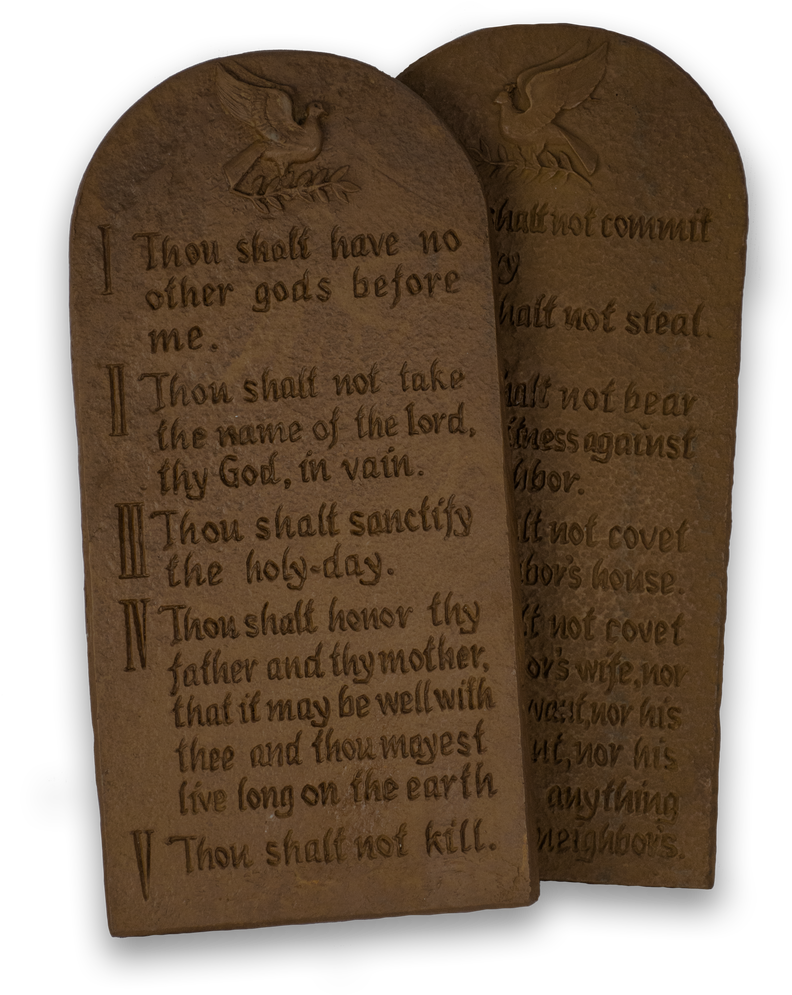 I Thou shalt have no
other gods before
me.
II Thou shalt not take
the name of the Lord,
thy God, in vain.
III Thou shalt sanctify
the holy-day.
IV Thou shalt honor thy
father and thy mother,
that it may be well with
thee and thou mayest
live long on the earth
V Thou shalt not kill.
halt not commit
ry
halt not steal.
alt not bear
itness against
hbor.
lt not covet
bor's house.
t not covet
or's wife, nor
nor his
nt, nor his
anything
neighbor's.